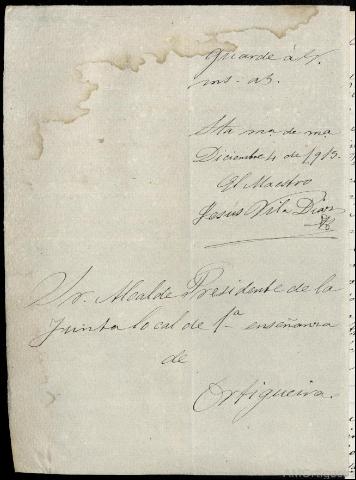 guarde á V.
ms. as.
Sta ma de ma
Diciembre 4 de 1913.
El Maestro
Jesús Vila Díaz
Sr. Alcalde Presidente de la
Junta local de 1ª enseñanza
de
Ortigueira.